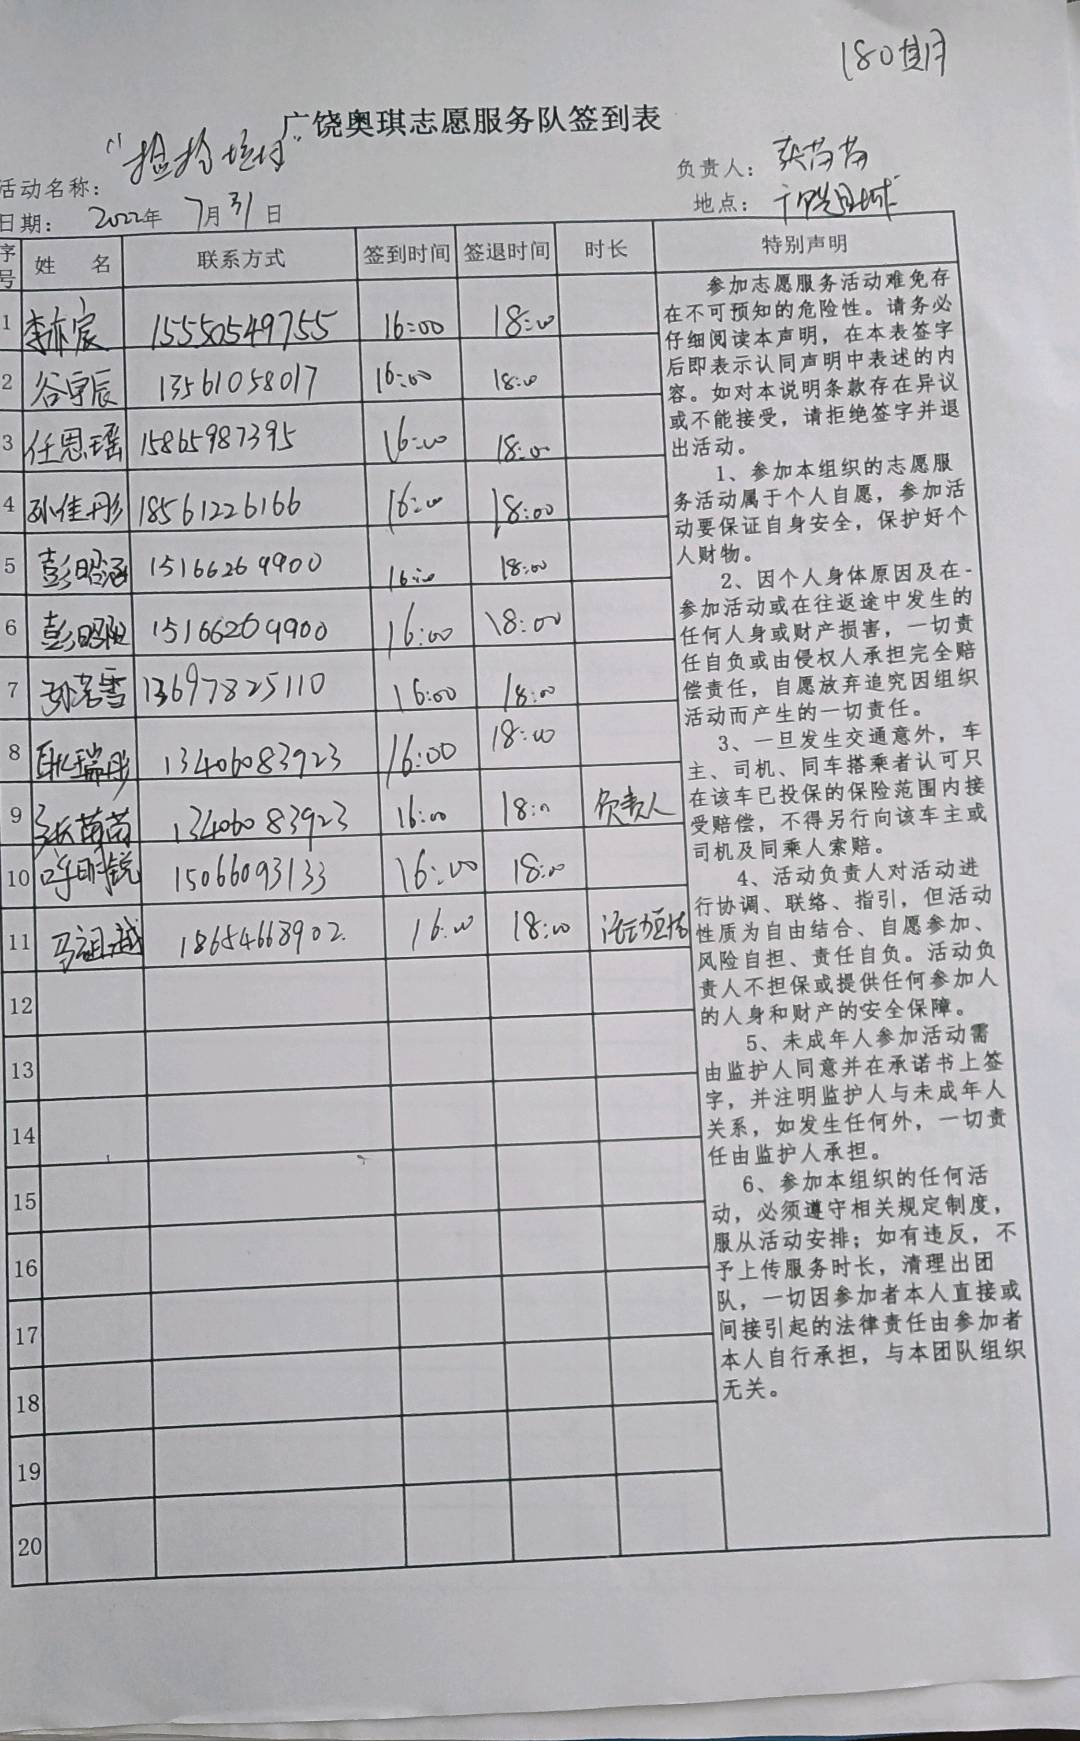 180期
广饶奥琪志愿服务队签到表
活动名称：
负责人：
日期： 2022年 7月31日
地点： 广饶县城
序号 姓 名 联系方式 签到时间 签退时间 时长 特别声明
1 李亦宸 15550549755 16:00 18:00
2 谷宇辰 13561058017 16:00 18:00
3 任恩瑶 15865987395 16:00 18:00
4 孙佳彤 18561226166 16:00 18:00
5 彭昭涵 15166269900 16:00 18:00
6 彭昭阳 15166269900 16:00 18:00
7 孙若雪 13697825110 16:00 18:00
8 耿瑞彤 13406083923 16:00 18:00
9 张苗苗 13406083923 16:00 18:00 负责人
10 呼明锐 15066093133 16:00 18:00
11 马祖越 18654668902 16:00 18:00
12
13
14
15
16
17
18
19
20
参加志愿服务活动难免存
在不可预知的危险性。请务必
仔细阅读本声明，在本表签字
后即表示认同声明中表述的内
容。如对本说明条款存在异议
或不能接受，请拒绝签字并退
出活动。
1、参加本组织的志愿服
务活动属于个人自愿，参加活
动要保证自身安全，保护好个
人财物。
2、因个人身体原因及在-
参加活动或在往返途中发生的
任何人身或财产损害，一切责
任自负或由侵权人承担完全赔
偿责任，自愿放弃追究因组织
活动而产生的一切责任。
3、一旦发生交通意外，车
主、司机、同车搭乘者认可只
在该车已投保的保险范围内接
受赔偿，不得另行向该车主或
司机及同乘人索赔。
4、活动负责人对活动进
行协调、联络、指引，但活动
性质为自由结合、自愿参加、
风险自担、责任自负。活动负
责人不担保或提供任何参加人
的人身和财产的安全保障。
5、未成年人参加活动需
由监护人同意并在承诺书上签
字，并注明监护人与未成年人
关系，如发生任何外，一切责
任由监护人承担。
6、参加本组织的任何活
动，必须遵守相关规定制度，
服从活动安排；如有违反，不
予上传服务时长，清理出团
队，一切因参加者本人直接或
间接引起的法律责任由参加者
本人自行承担，与本团队组织
无关。